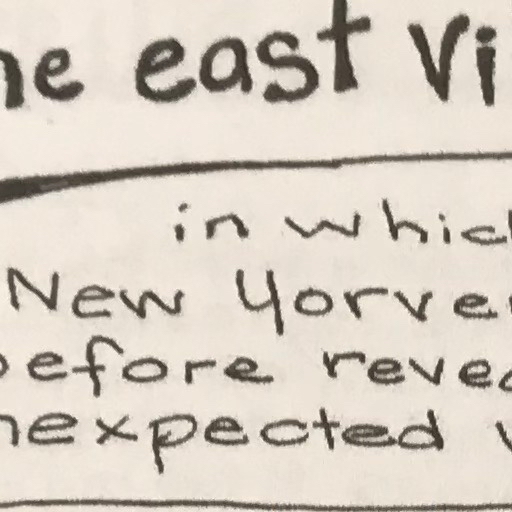 he east vi
in which
New Yorve
before revea
nexpected